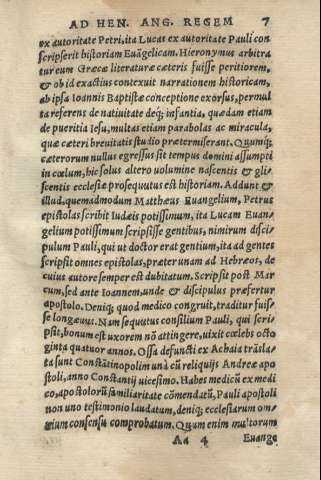 AD HEN. ANG. REGEM 7
ex autoritate Petri, ita Lucas ex autoritate Pauli con
scripserit historiam Euãgelicam. Hieronymus arbitra
tur eum Græcæ literaturæ cæteris fuisse peritiorem,
& ob id exactius contexuit narrationem historicam,
ab ipsa Ioannis Baptistæ conceptione exorsus, permul
ta referens de natiuitate deq; infantia, quædam etiam
de pueritia Iesu, multas etiam parabolas ac miracula,
quæ cæteri breuitatis studio prætermiserant. Quumq;
cæterorum nullus egressus sit tempus domini assumpti
in cœlum, hic solus altero uolumine nascentis & gli-
scentis ecclesiæ prosequutus est historiam. Addunt &
illud, quemadmodum Matthæus Euangelium, Petrus
epistolas scribit Iudæis potissimum, ita Lucam Euan-
gelium potissimum scripsisse gentibus, nimirum disci-
pulum Pauli, qui ut doctor erat gentium, ita ad gentes
scripsit omnes epistolas, præter unam ad Hebræos, de
cuius autore semper est dubitatum. Scripsit post Mar
cum, sed ante Ioannem, unde & discipulus præfertur
apostolo. Deniq; quod medico congruit, traditur fuis-
se longæuus. Nam sequutus consilium Pauli, qui scri-
psit, bonum est uxorem nõ attingere, uixit cœlebs octo
ginta quatuor annos. Ossa defuncti ex Achaia trãsla-
ta sunt Constãtinopolim unà cũ reliquijs Andreæ apo
stoli, anno Constantij uicesimo. Habes medicũ ex medi
co, apostolorũ familiaritate cõmendatũ, Pauli apostoli
non uno testimonio laudatum, deniq; ecclesiarum om-
nium consensu comprobatum. Quam enim multorum
Aa 4 Euange